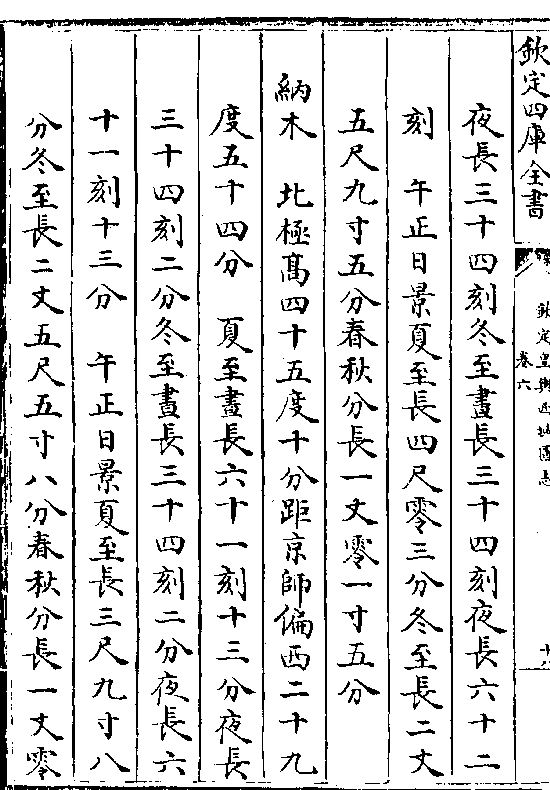 欽定四庫全書
欽定皇輿西域圖志
卷六
夜長三十四刻冬至晝長三十四刻夜長六十二
刻　午正日景夏至長四尺零三分冬至長二丈
五尺九寸五分春秋分長一丈零一寸五分
納木　北極髙四十五度十分距京師偏西二十九
度五十四分　夏至晝長六十一刻十三分夜長
三十四刻二分冬至晝長三十四刻二分夜長六
十一刻十三分　午正日景夏至長三尺九寸八
分冬至長二丈五尺五寸八分春秋分長一丈零